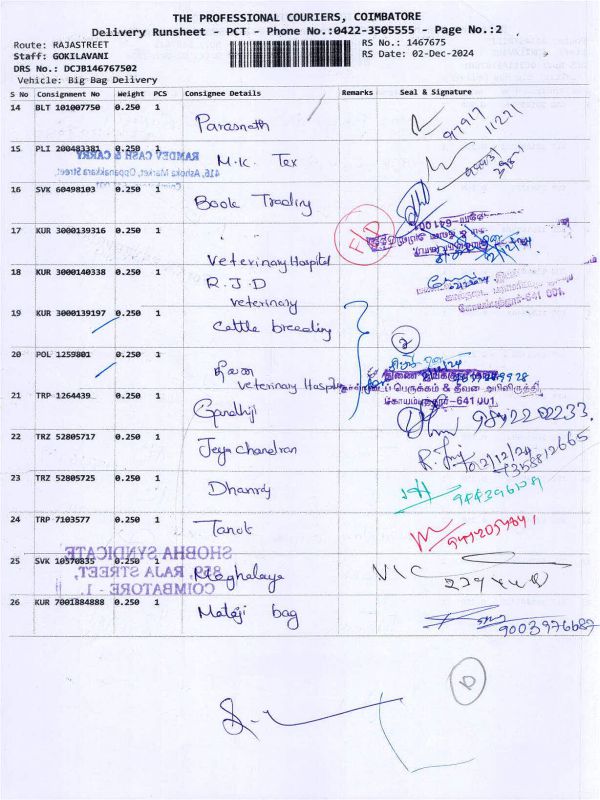 THE PROFESSIONAL COURIERS, COIMBATORE
Delivery Runsheet - PCT - Phone No.:0422-3505555 - Page No.:2
Route: RAJASTREET
Staff: GOKILAVANI
DRS No.: DCJB146767502
Vehicle: Big Bag Delivery
RS No.: 1467675
RS Date: 02-Dec-2024
S No Consignment No Weight PCS Consignee Details Remarks Seal & Signature
14 BLT 101007750 0.250 1 Parasnath 97917 11271
15 PLI 200483381 0.250 1 M.K. Tex
RAMDEV CASH & CARRY
416, Ashoka Market, Oppanakkara Street,
16 SVK 60498103 0.250 1 Book Trading
17 KUR 3000139316 0.250 1 Veterinary Hospital
F/D
18 KUR 3000140338 0.250 1 R.J.D
veterinary
19 KUR 3000139197 0.250 1 Cattle breeding
2
20 POL 1259801 0.250 1
veterinary Hospital
பெருக்கம் & தீவன அபிவிருத்தி
கோயம்புத்தூர்-641 001
21 TRP 1264439 0.250 1 Gandhiji
22 TRZ 52805717 0.250 1 Jeya chandran 02/12/24
7358812665
23 TRZ 52805725 0.250 1 Dhanraj
24 TRP 7103577 0.250 1 Tanot
25 SVK 10570835 0.250 1 Meghalaya
SHOBHA SYNDICATE
859, RAJA STREET,
COIMBATORE - 1.
26 KUR 7001884888 0.250 1 Mataji bag 9003976687